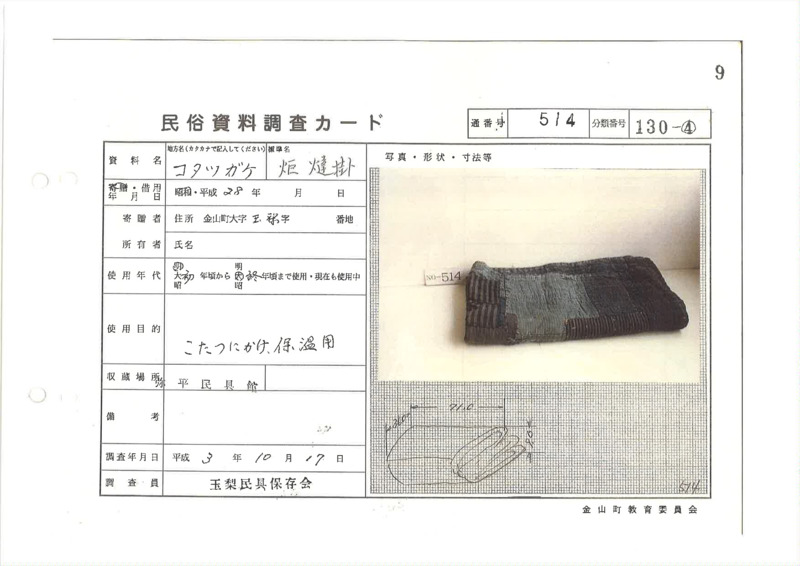 9
民俗資料調査カード
通番号 514 分類番号 130-④
資料名 地方名(カタカナで記入してください) コタツガケ 標準名 炬燵掛
写真・形状・寸法等
寄贈・借用年月日 昭和・平成 28 年 月 日
寄贈者 住所 金山町大字 玉梨 字 番地
所有者 氏名
使用年代 明 大 昭 初 年頃から 明 昭 終 年頃まで使用・現在も使用中
NO-514
使用目的 こたつにかけ、保温用
収蔵場所 弥平民具館
備考
71.0
調査年月日 平成 3 年 10 月 17 日
調査員 玉梨民具保存会
514
金山町教育委員会